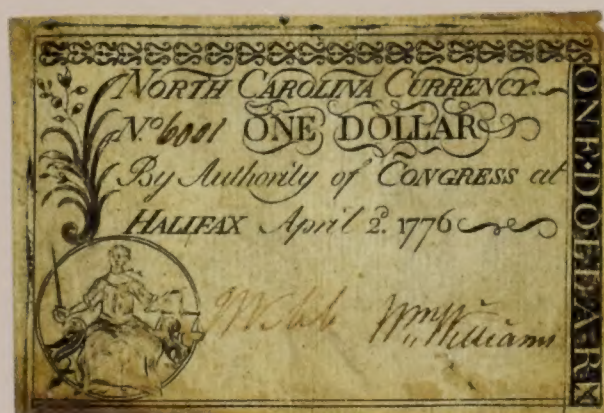 NORTH CAROLINA CURRENCY.
No. 6001 ONE DOLLAR
By Authority of CONGRESS at
HALIFAX April 2d. 1776
J Webb Wm Williams
ONE·DOLLAR